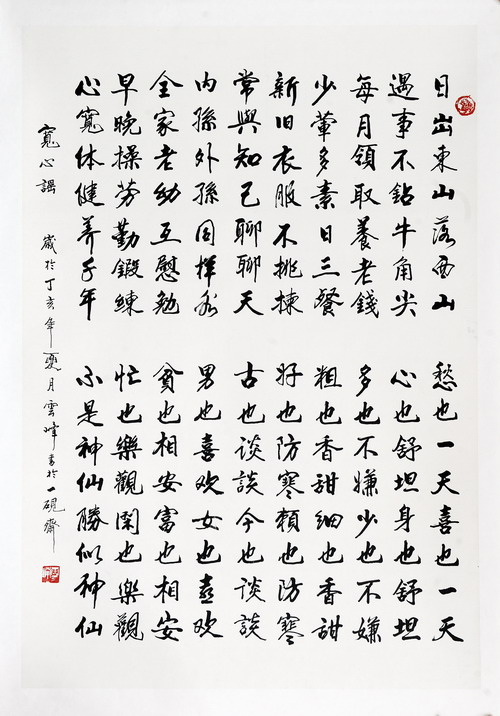 日出東山落西山 愁也一天喜也一天
遇事不鉆牛角尖 心也舒坦身也舒坦
每月領取養老錢 多也不嫌少也不嫌
少葷多素日三餐 粗也香甜細也香甜
新旧衣服不挑揀 好也防寒賴也防寒
常與知己聊聊天 古也谈談今也谈談
内孫外孫同样看 男也喜欢女也喜欢
全家老幼互慰勉 貧也相安富也相安
早晚操劳勤鍛練 忙也樂觀閑也樂觀
心寬体健养千年 不是神仙勝似神仙
寬心謡 歲於丁亥年夏月雲峰書於一硯齋